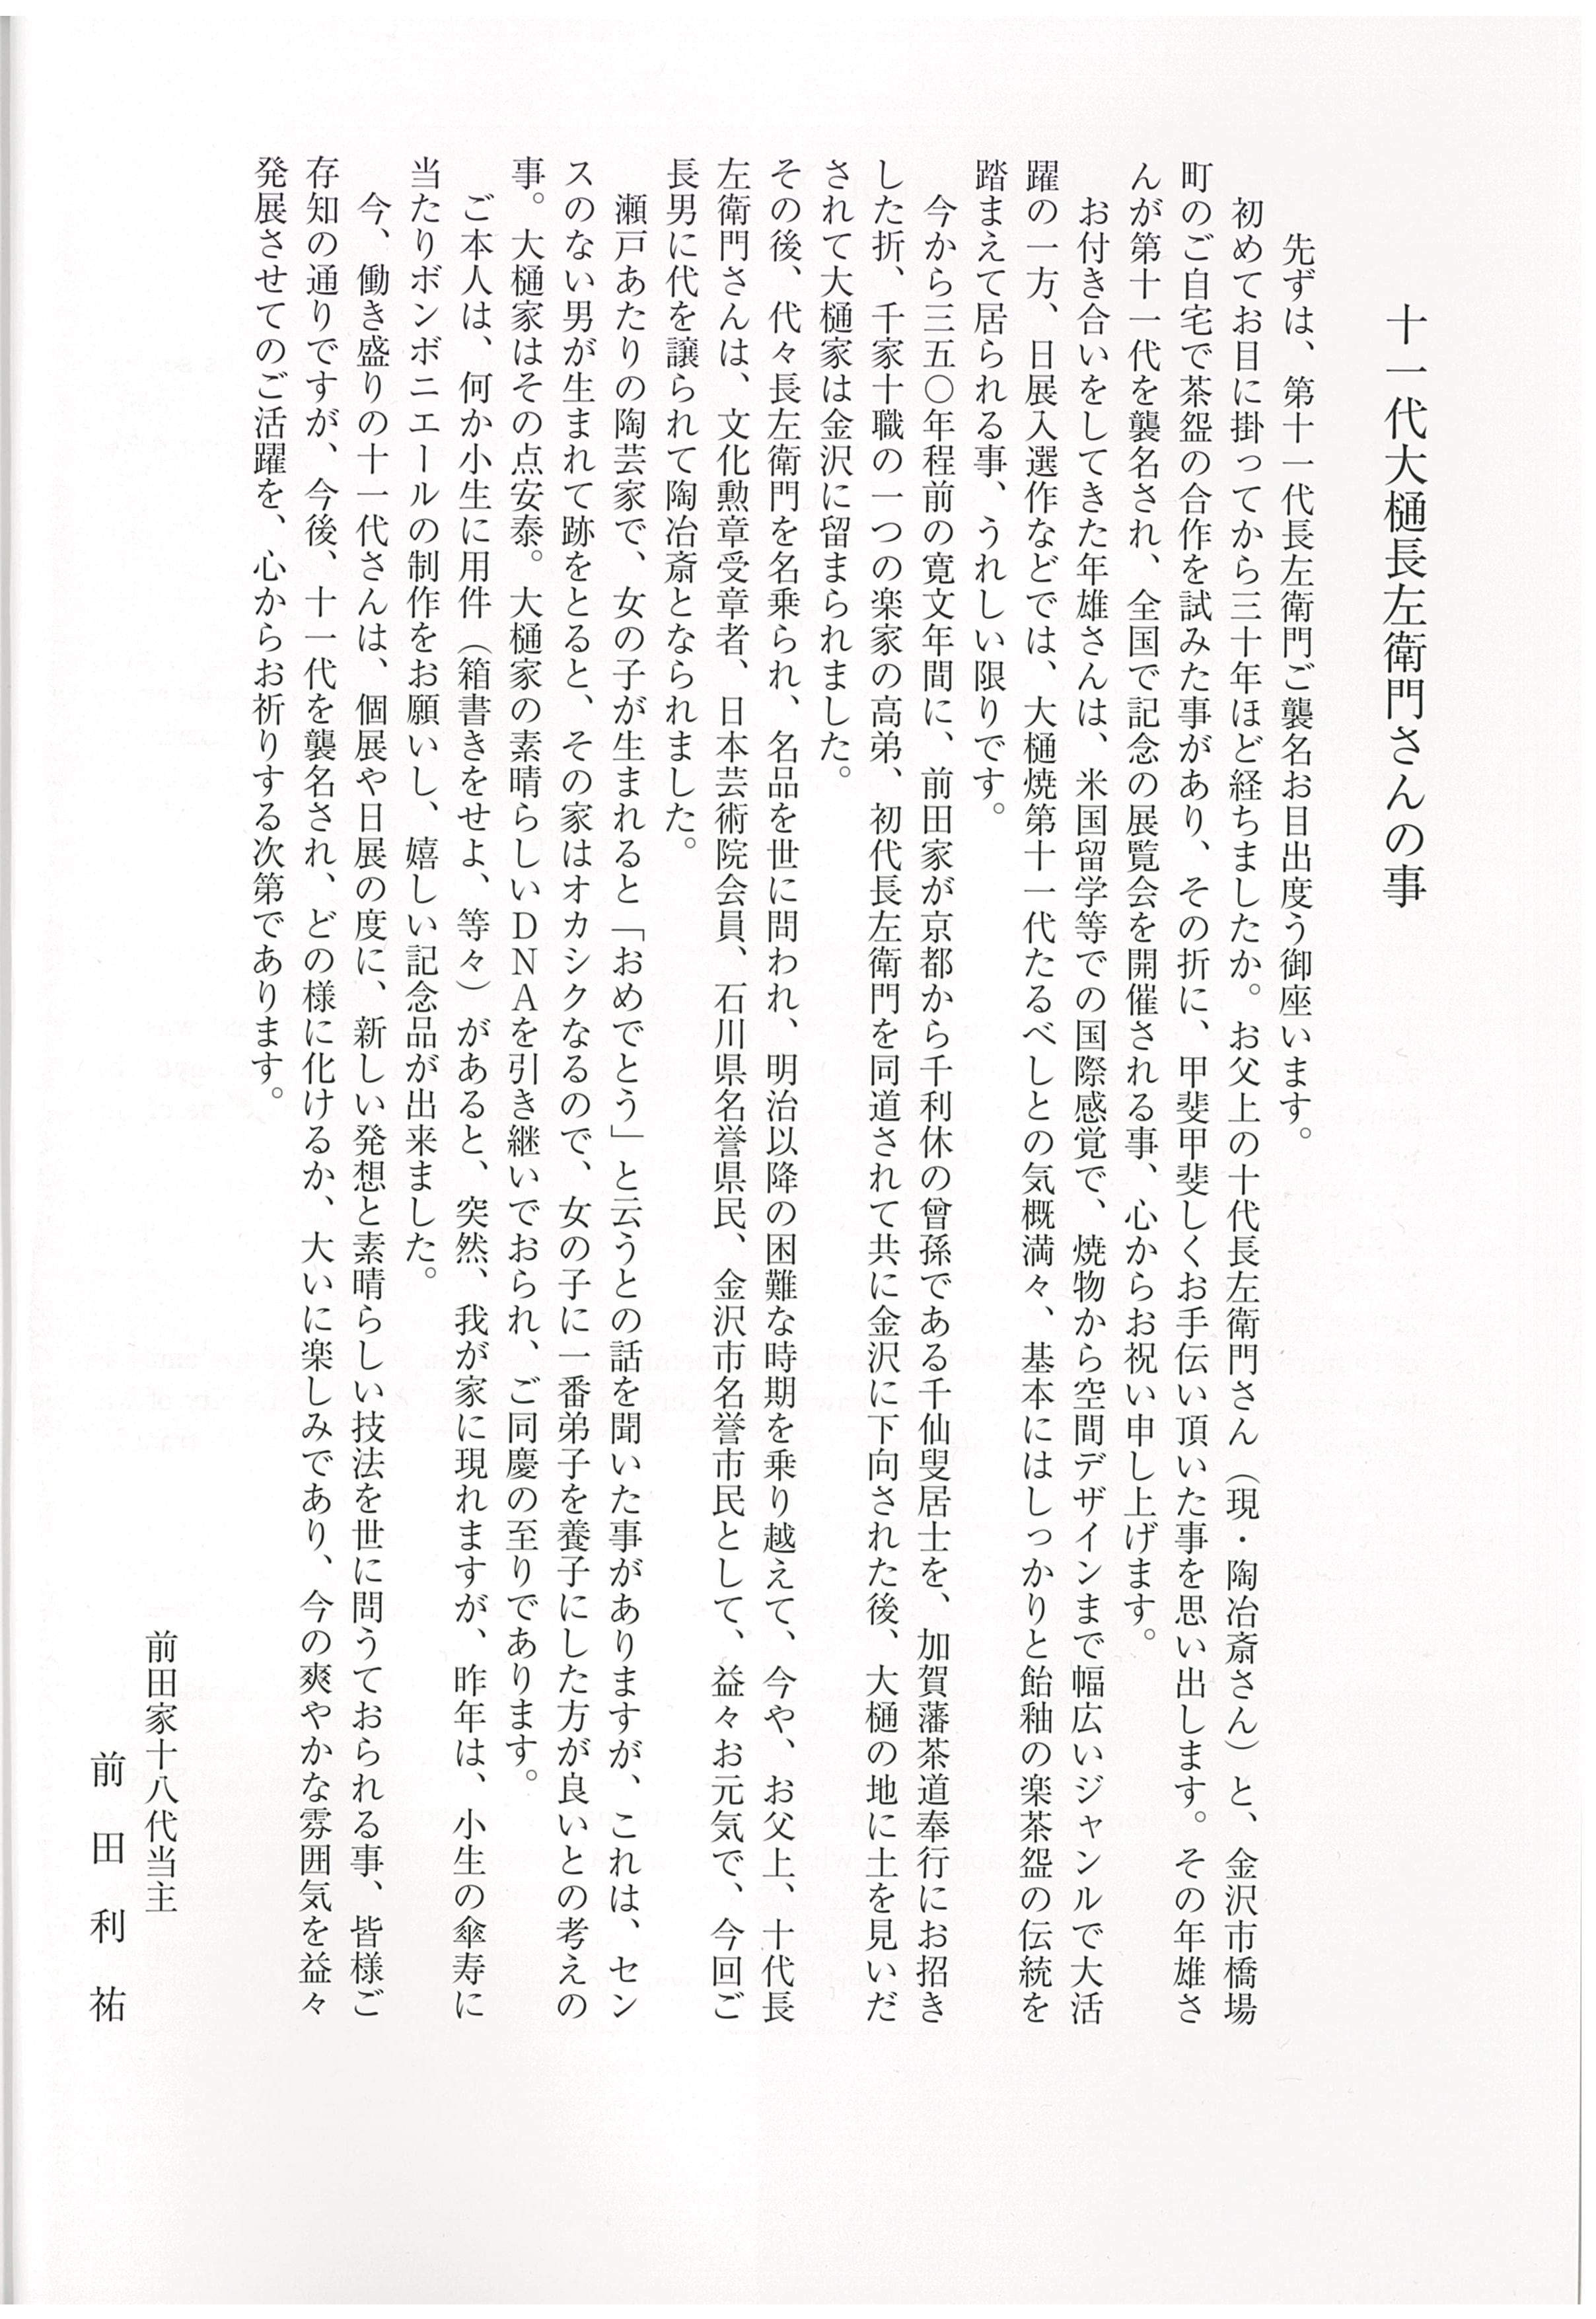 十一代大樋長左衛門さんの事
先ずは、第十一代長左衛門ご襲名お目出度う御座います。
初めてお目に掛ってから三十年ほど経ちましたか。お父上の十代長左衛門さん（現・陶冶斎さん）と、金沢市橋場
町のご自宅で茶盌の合作を試みた事があり、その折に、甲斐甲斐しくお手伝い頂いた事を思い出します。その年雄さ
んが第十一代を襲名され、全国で記念の展覧会を開催される事、心からお祝い申し上げます。
お付き合いをしてきた年雄さんは、米国留学等での国際感覚で、焼物から空間デザインまで幅広いジャンルで大活
躍の一方、日展入選作などでは、大樋焼第十一代たるべしとの気概満々、基本にはしっかりと飴釉の楽茶盌の伝統を
踏まえて居られる事、うれしい限りです。
今から三五〇年程前の寛文年間に、前田家が京都から千利休の曾孫である千仙叟居士を、加賀藩茶道奉行にお招き
した折、千家十職の一つの楽家の高弟、初代長左衛門を同道されて共に金沢に下向された後、大樋の地に土を見いだ
されて大樋家は金沢に留まられました。
その後、代々長左衛門を名乗られ、名品を世に問われ、明治以降の困難な時期を乗り越えて、今や、お父上、十代長
左衛門さんは、文化勲章受章者、日本芸術院会員、石川県名誉県民、金沢市名誉市民として、益々お元気で、今回ご
長男に代を譲られて陶冶斎となられました。
瀬戸あたりの陶芸家で、女の子が生まれると「おめでとう」と云うとの話を聞いた事がありますが、これは、セン
スのない男が生まれて跡をとると、その家はオカシクなるので、女の子に一番弟子を養子にした方が良いとの考えの
事。大樋家はその点安泰。大樋家の素晴らしいＤＮＡを引き継いでおられ、ご同慶の至りであります。
ご本人は、何か小生に用件（箱書きをせよ、等々）があると、突然、我が家に現れますが、昨年は、小生の傘寿に
当たりボンボニエールの制作をお願いし、嬉しい記念品が出来ました。
今、働き盛りの十一代さんは、個展や日展の度に、新しい発想と素晴らしい技法を世に問うておられる事、皆様ご
存知の通りですが、今後、十一代を襲名され、どの様に化けるか、大いに楽しみであり、今の爽やかな雰囲気を益々
発展させてのご活躍を、心からお祈りする次第であります。
前田家十八代当主
前田利祐